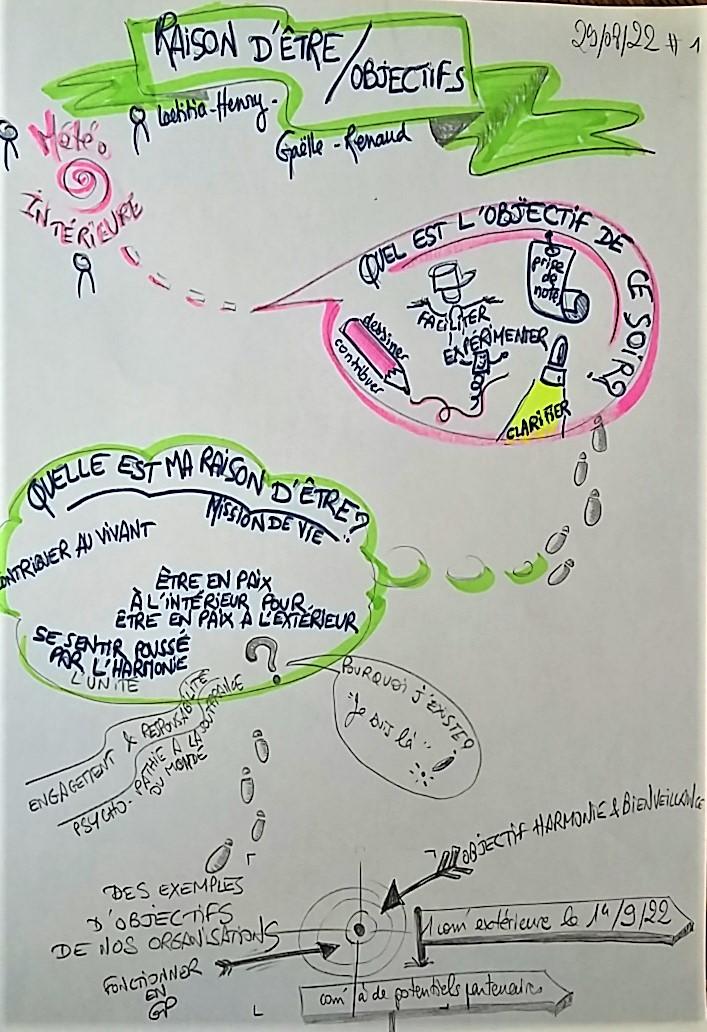 RAISON D'ÊTRE / OBJECTIFS
# 1
Laetitia-Henry-
Gaëlle-Renaud
Météo
INTÉRIEURE
QUEL EST L'OBJECTIF DE CE SOIR?
prise
de
notes
FACILITER
EXPÉRIMENTER
dessiner
contribuer
CLARIFIER
QUELLE EST MA RAISON D'ÊTRE?
MISSION DE VIE
CONTRIBUER AU VIVANT
ÊTRE EN PAIX
À L'INTÉRIEUR POUR
ÊTRE EN PAIX A L'EXTÉRIEUR
SE SENTIR POUSSÉ
PAR L'HARMONIE
L'UNITÉ
?
ENGAGEMENT & RESPONSABILITÉ
PSYCHO-PATHIE A LA SOUFFRANCE
DU MONDE
POURQUOI J'EXISTE?
"Je suis là" !
OBJECTIF HARMONIE & BIENVEILLANCE
DES EXEMPLES
D'OBJECTIFS
DE NOS ORGANISATIONS
FONCTIONNER
EN
GP
1 com' extérieure le
com' à de potentiels partenaires